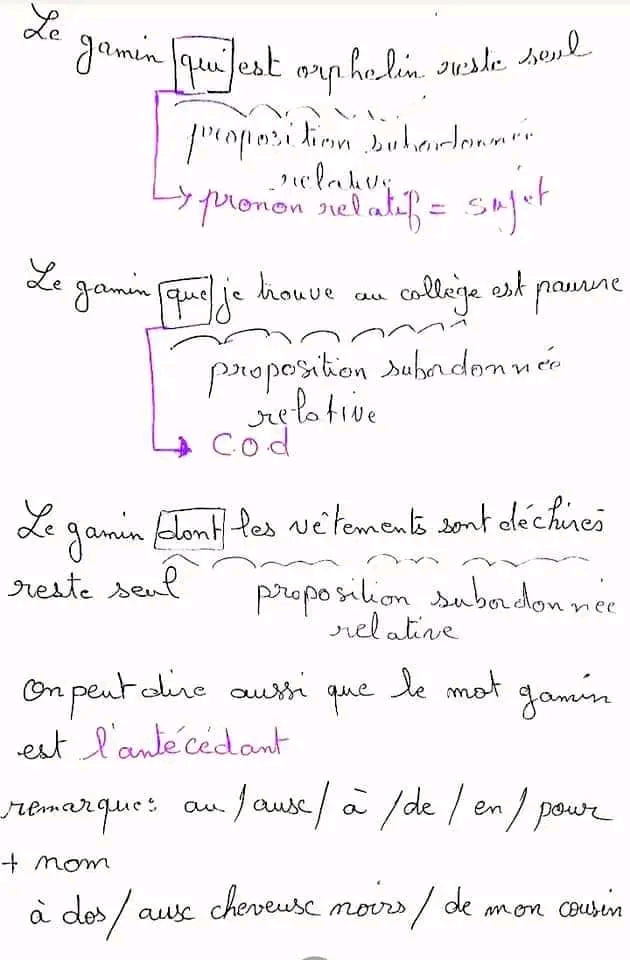 Le gamin qui est orphelin reste seul
proposition subordonnée
relative
→ pronon relatif = sujet
Le gamin que je trouve au collège est pauvre
proposition subordonnée
relative
C.O.d
Le gamin dont les vêtements sont déchirés
reste seul proposition subordonnée
relative
On peut dire aussi que le mot gamin
est l'antécédant
remarque: au / aux / à / de / en / pour
+ nom
à dos / aux cheveux noirs / de mon cousin